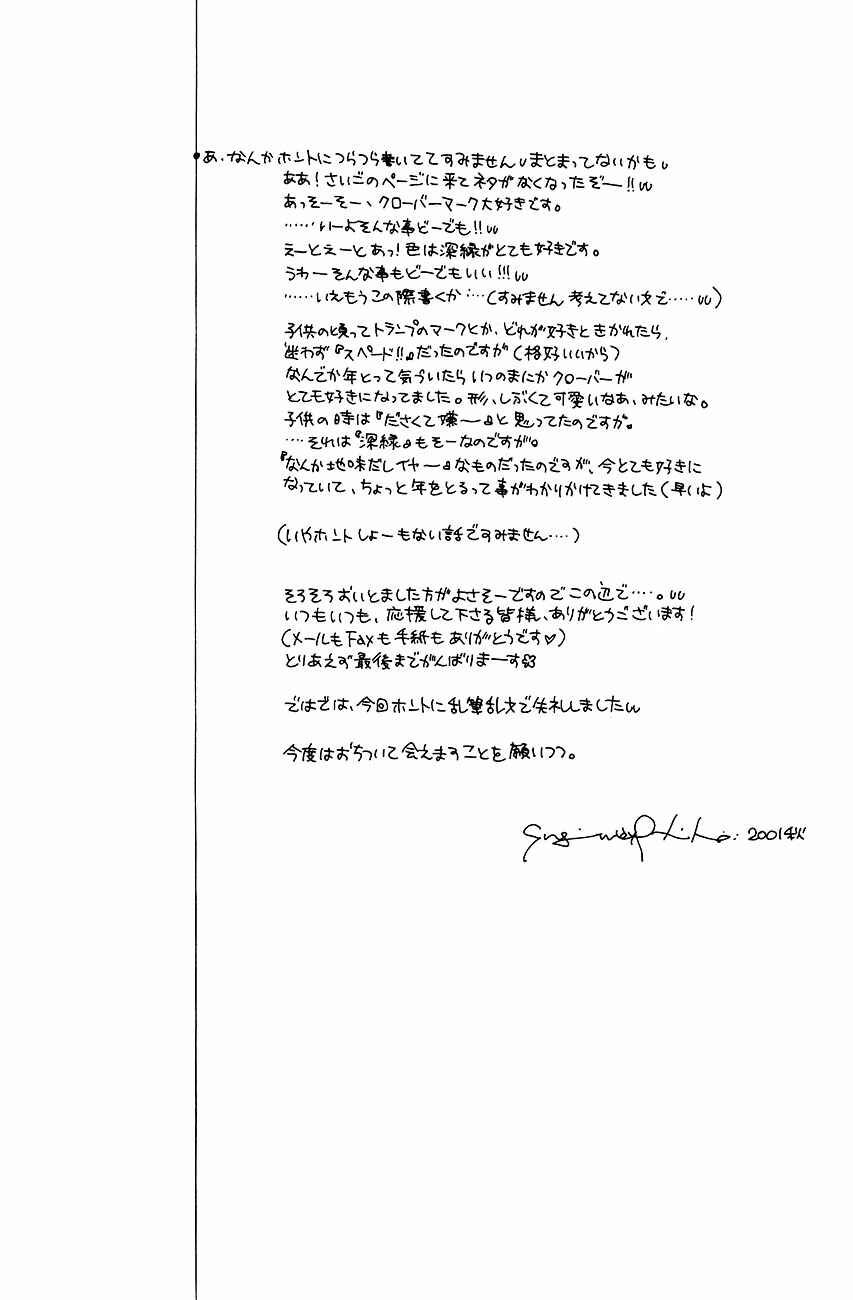 ・あ、なんかホントにつらつら書いててすみませんまとまってないかも
ああ！さいごのページに来てネタがなくなったぞー!!
あっそーそー、クローバーマーク大好きです。
……いーよそんな事どーでも!!
えーとえーとあっ！色は深緑がとても好きです。
うわーそんな事もどーでもいい!!!
……いえもうこの際書くか…(すみません考えてない文で……)
子供の頃ってトランプのマークとか、どれが好きときかれたら、
迷わず『スペード!!』だったのですが(格好いいから)
なんでか年とって気づいたらいつのまにかクローバーが
とても好きになってました。形、しぶくて可愛いなあ、みたいな。
子供の時は『ださくて嫌〜』と思ってたのですが。
…それは『深緑』もそーなのですが。
『なんか地味だしイヤー』なものだったのですが、今とても好きに
なっていて、ちょっと年をとるって事がわかりかけてきました(早いよ)
(いやホントしょーもない話ですみません…)
そろそろおいとました方がよさそーですのでこの辺で…。
いつもいつも、応援して下さる皆様、ありがとうございます！
(メールもFaxも手紙もありがとうです♡)
とりあえず最後までがんばりまーす
ではでは、今回ホントに乱筆乱文で失礼しました
今度はおちついて会えますことを願いつつ。
2001秋